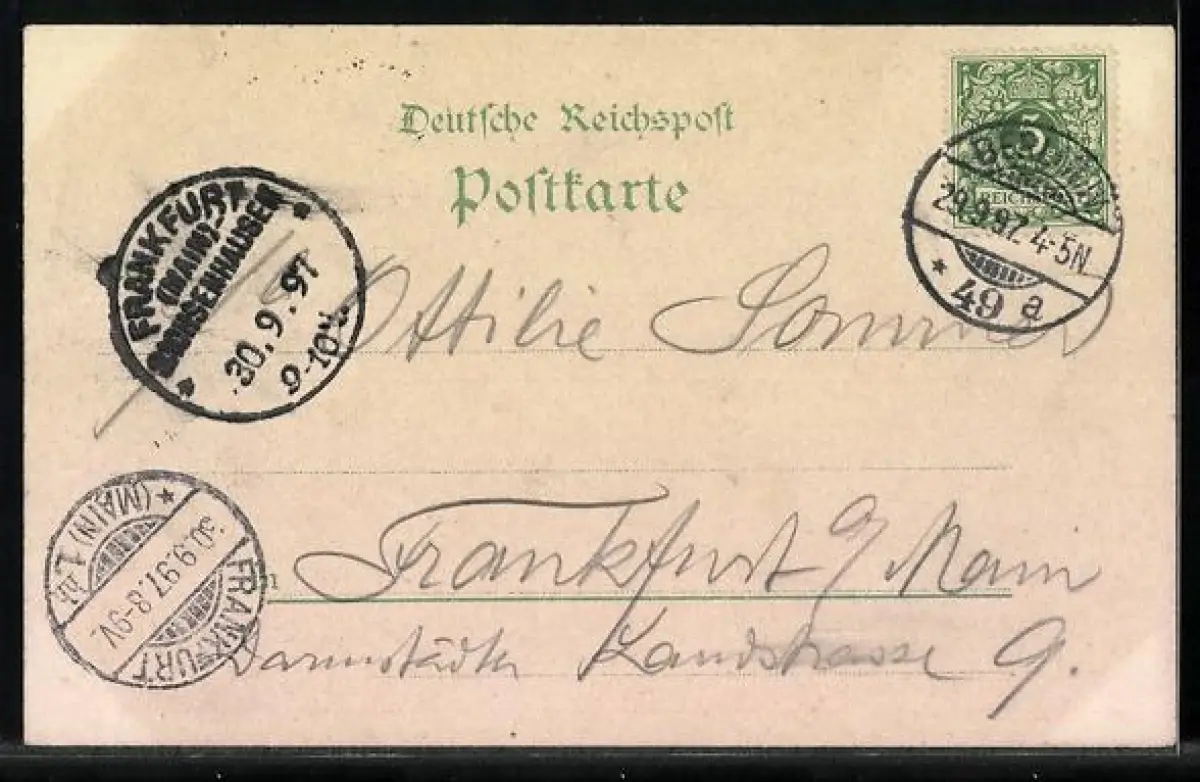 Deutsche Reichspost
Postkarte
5
REICHSPOST
BERLIN
29.9.97. 4-5N
* 49 a
FRANKFURT
(MAIN)-
SACHSENHAUSEN
30.9.97
9-10V.
Ottilie Sommer
Frankfurt a/Main
Darmstädter Landstrasse 9.
FRANKFURT
30.9.97. 8-9V.
* (MAIN) 1